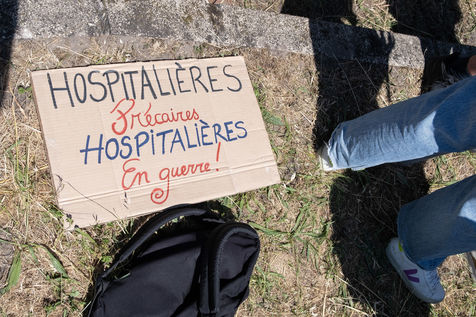 HOSPITALIÈRES
Précaires
HOSPITALIÈRES
En guerre !